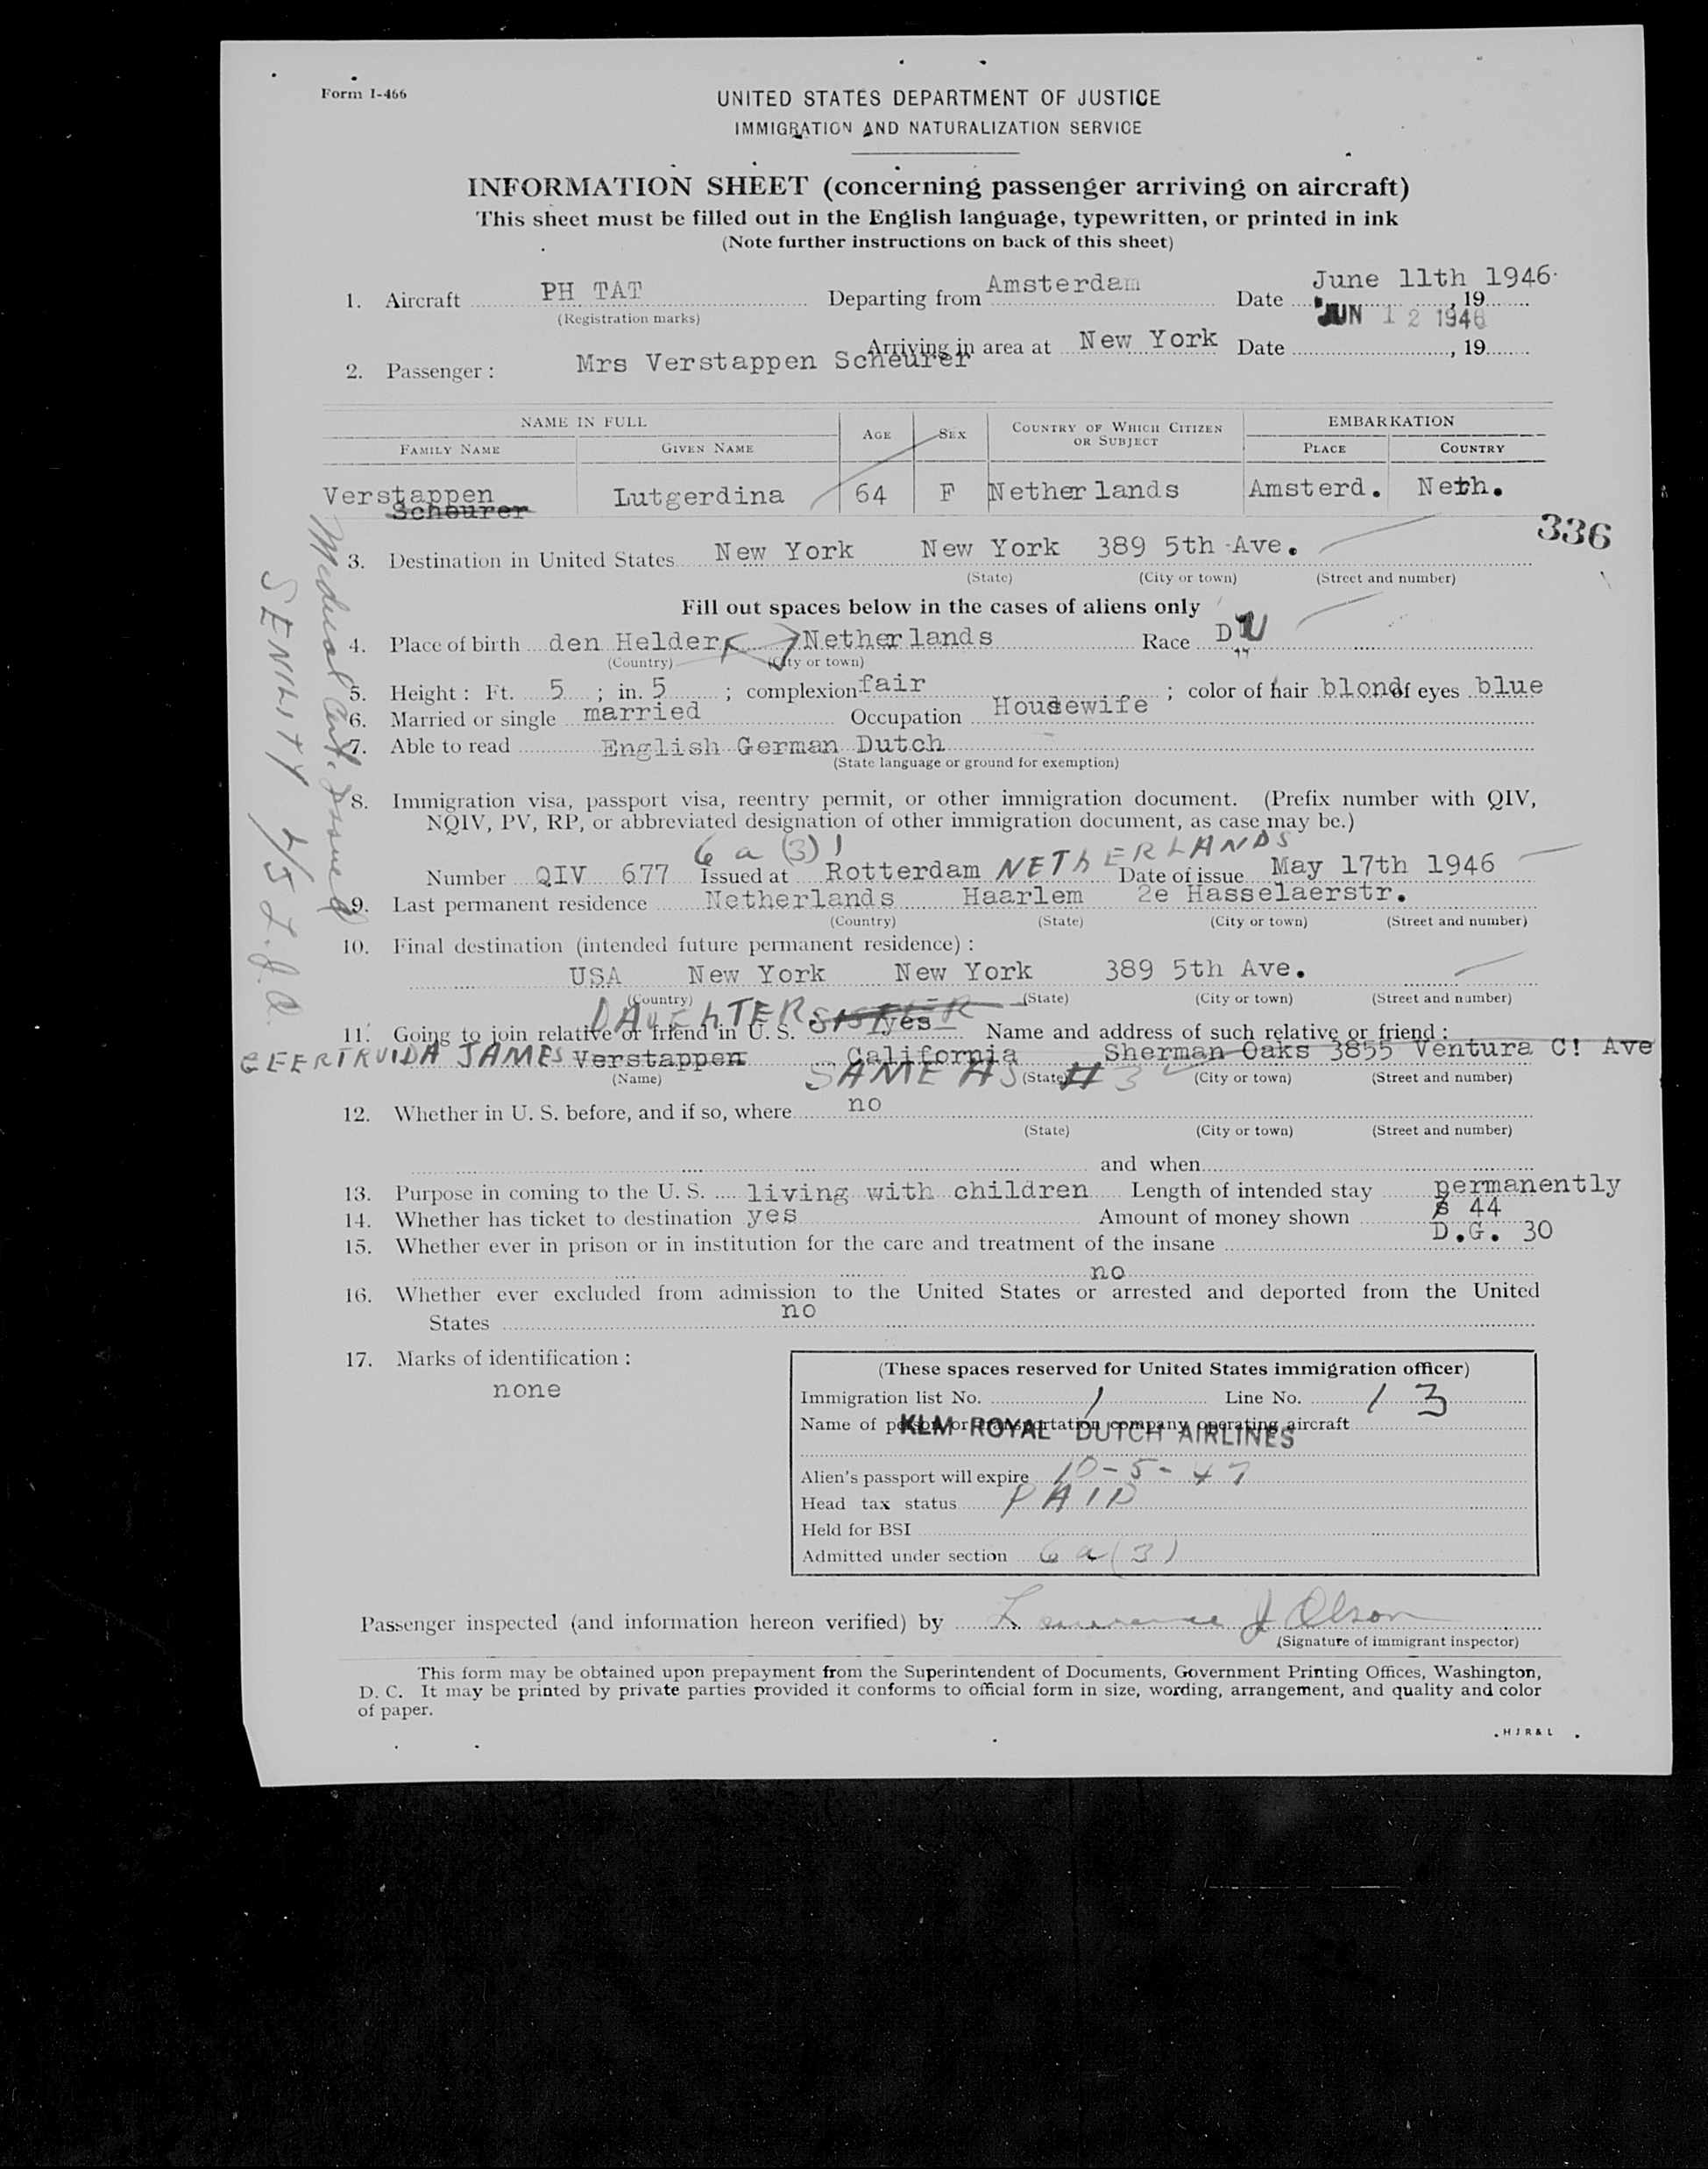 Form I-466
UNITED STATES DEPARTMENT OF JUSTICE
IMMIGRATION AND NATURALIZATION SERVICE
INFORMATION SHEET (concerning passenger arriving on aircraft)
This sheet must be filled out in the English language, typewritten, or printed in ink
(Note further instructions on back of this sheet)
1. Aircraft PH TAT Departing from Amsterdam Date June 11th 1946 , 19
(Registration marks)
JUN 12 1946
Arriving in area at New York Date , 19
2. Passenger : Mrs Verstappen Scheurer
NAME IN FULL AGE SEX COUNTRY OF WHICH CITIZEN OR SUBJECT EMBARKATION
FAMILY NAME GIVEN NAME PLACE COUNTRY
Verstappen Lutgerdina 64 F Netherlands Amsterd. Neth.
Scheurer
336
3. Destination in United States New York New York 389 5th Ave.
(State) (City or town) (Street and number)
Fill out spaces below in the cases of aliens only
4. Place of birth den Helder Netherlands Race DU
(Country) (City or town)
5. Height : Ft. 5 ; in. 5 ; complexion fair ; color of hair blond of eyes blue
6. Married or single married Occupation Housewife
7. Able to read English German Dutch
(State language or ground for exemption)
8. Immigration visa, passport visa, reentry permit, or other immigration document. (Prefix number with QIV,
NQIV, PV, RP, or abbreviated designation of other immigration document, as case may be.)
6 a (3)
Number QIV 677 Issued at Rotterdam NETHERLANDS Date of issue May 17th 1946
9. Last permanent residence Netherlands Haarlem 2e Hasselaerstr.
(Country) (State) (City or town) (Street and number)
10. Final destination (intended future permanent residence) :
USA New York New York 389 5th Ave.
(Country) (State) (City or town) (Street and number)
DAUGHTER SISTER
11. Going to join relative or friend in U. S. yes Name and address of such relative or friend :
GEERTRUIDA JAMES Verstappen California Sherman Oaks 3855 Ventura C! Ave
SAME AS # 3
(Name) (State) (City or town) (Street and number)
12. Whether in U. S. before, and if so, where no
(State) (City or town) (Street and number)
and when
13. Purpose in coming to the U. S. living with children Length of intended stay permanently
14. Whether has ticket to destination yes Amount of money shown $ 44
D.G. 30
15. Whether ever in prison or in institution for the care and treatment of the insane
no
16. Whether ever excluded from admission to the United States or arrested and deported from the United
States no
17. Marks of identification :
none
(These spaces reserved for United States immigration officer)
Immigration list No. 1 Line No. 13
Name of person or transportation company operating aircraft
KLM ROYAL DUTCH AIRLINES
Alien's passport will expire 10-5-47
Head tax status PAID
Held for BSI
Admitted under section 6 a (3)
Passenger inspected (and information hereon verified) by Lawrence J Olson
(Signature of immigrant inspector)
This form may be obtained upon prepayment from the Superintendent of Documents, Government Printing Offices, Washington,
D. C. It may be printed by private parties provided it conforms to official form in size, wording, arrangement, and quality and color
of paper.
HJR&L
Medical Cert. Issued
SENILITY